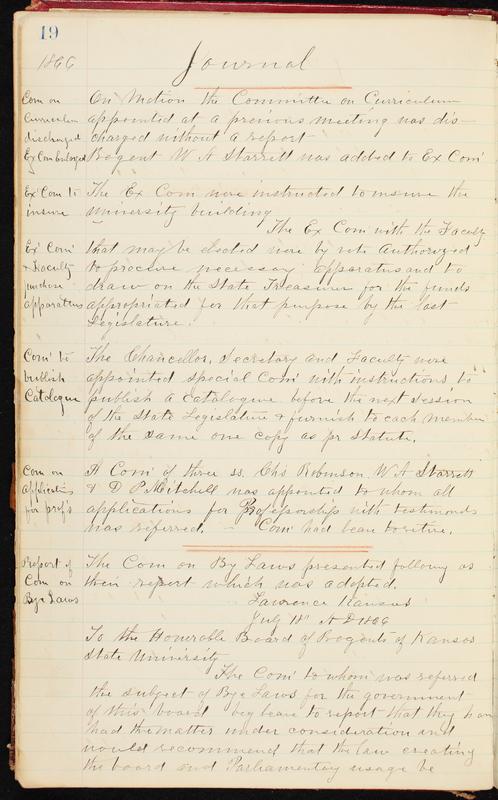 19
1866
Journal
Com on
Curriculum
discharged
On Motion the Committee on Curriculum
appointed at a previous meeting was dis-
charged without a report
Ex Com enlarged
Regent W A Starrett was added to Ex Com
Ex Com to
insure
The Ex Com were instructed to insure the
University building
Ex Com
& Faculty
purchase
apparatus
The Ex Com with the Faculty
that may be elected were by vote Authorized
to procure necessary apparatus and to
draw on the State Treasurer for the funds
appropriated for that purpose by the last
Legislature.
Com to
publish
Catologue
The Chancellor, Secretary and Faculty were
appointed special Com with instructions to
publish a Catalogue before the next session
of the State Legislature & furnish to each member
of the same one copy as pr statute.
Com on
Application
for prof's
A Com of three ss. Chs Robinson. W. A Starrett
& D P Mitchell was appointed to whom all
applications for Professorship with testimonds
was referred. - Com had leave to retire.
Report of
Com on
Bye Laws
The Com on By Laws presented following as
their report which was adopted.
Lawrence Kansas
July 18" A D 1866
To the Honorable Board of Regents of Kansas
State University
The Com to whom was referred
the subject of Bye Laws for the government
of this board beg leave to report that they have
had the matter under consideration and
would recommend that the law creating
the board and Parliamentary usage be